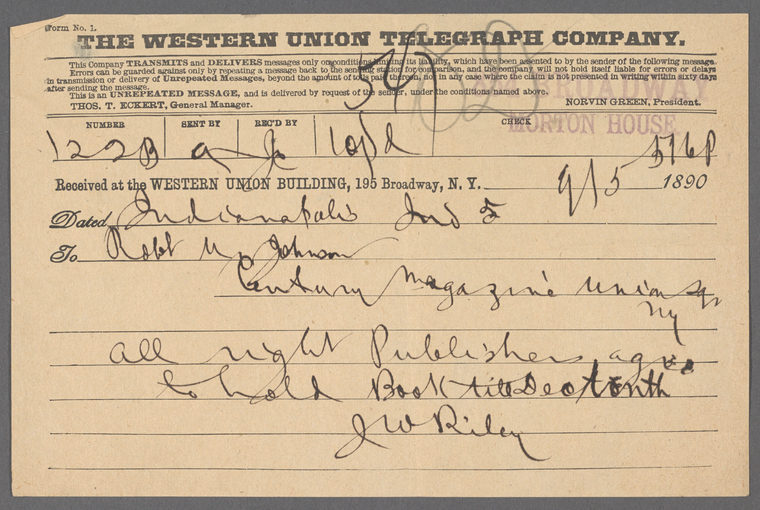 Form No. 1.
THE WESTERN UNION TELEGRAPH COMPANY.
This Company TRANSMITS and DELIVERS messages only on conditions limiting its liability, which have been assented to by the sender of the following message.
Errors can be guarded against only by repeating a message back to the sending station for comparison, and the company will not hold itself liable for errors or delays
in transmission or delivery of Unrepeated Messages, beyond the amount of tolls paid thereon, nor in any case where the claim is not presented in writing within sixty days
after sending the message.
This is an UNREPEATED MESSAGE, and is delivered by request of the sender, under the conditions named above.
THOS. T. ECKERT, General Manager. NORVIN GREEN, President.
BROADWAY
MORTON HOUSE
NUMBER SENT BY REC'D BY CHECK
122B 10pd
516P
Received at the WESTERN UNION BUILDING, 195 Broadway, N. Y. 9/5 1890
Dated Indianapolis Ind 5
To Robt U Johnson
Century Magazine Union Sqr
NY
All right Publishers agree
to hold Book till Dec tenth
J W Riley